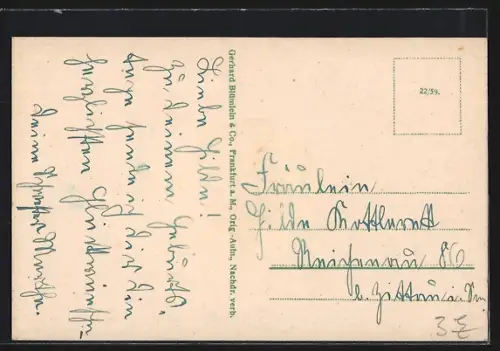 Liebe Hilde!
Zu Deinem Geburts-
tage sende ich Dir die
herzlichsten Glückwünsche.
Deine
Gerhard Blümlein & Co., Frankfurt a. M., Orig.-Aufn., Nachdr. verb.
22/54.
Fräulein
Hilde
Reichenau 86
b. Zittau i. Sa.
3 €